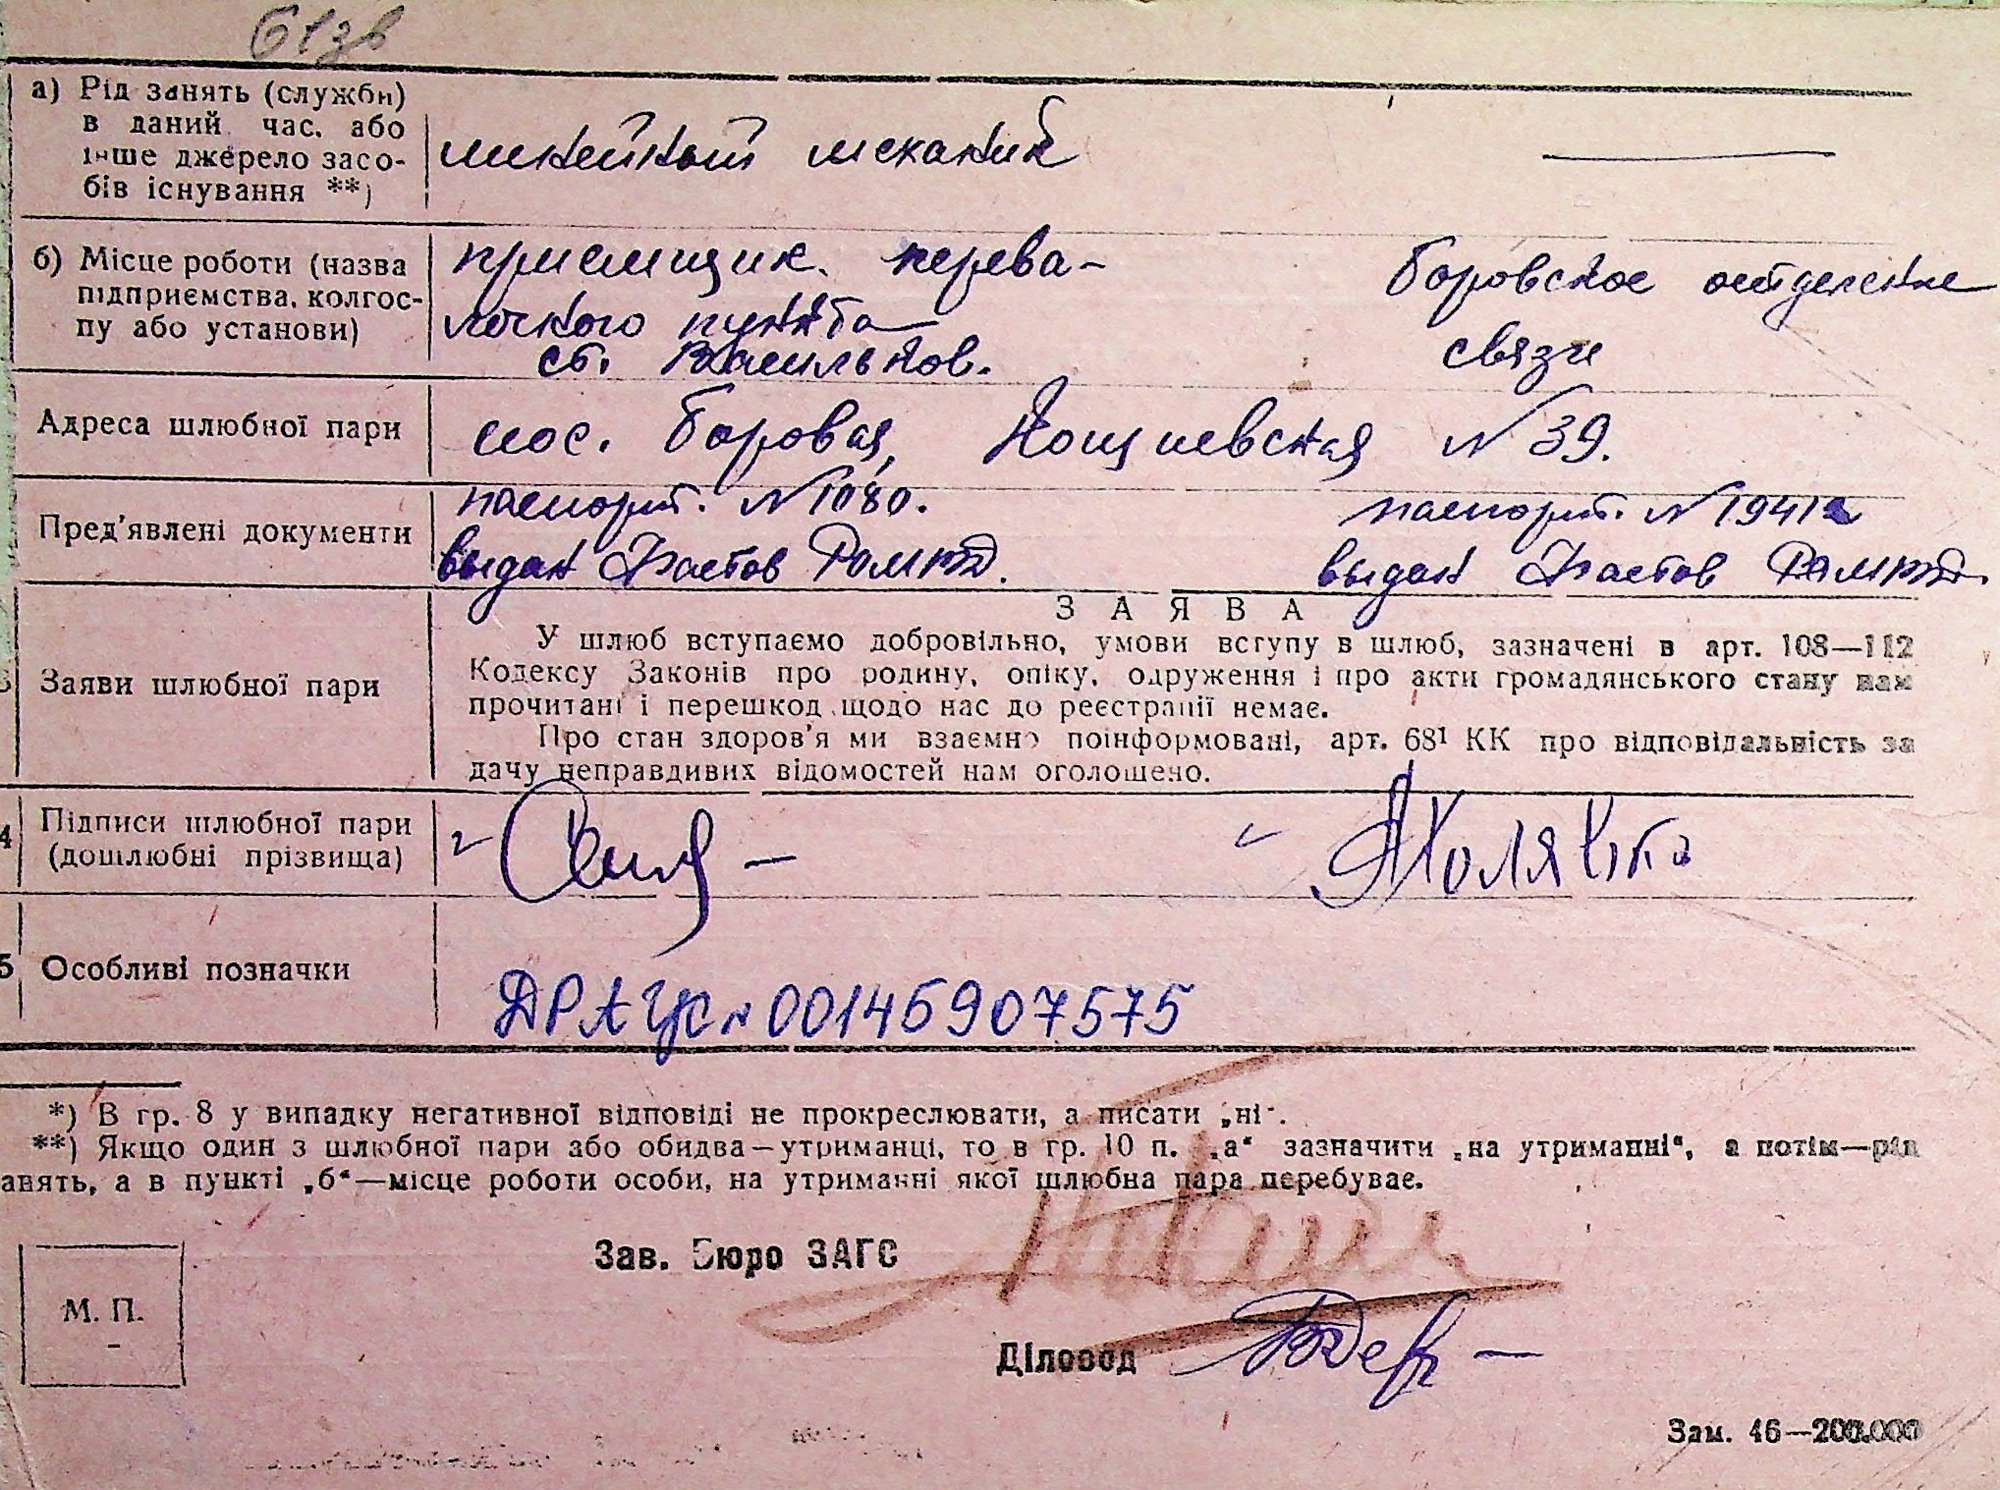 а) Рід занять (служби)
в даний час, або
інше джерело засо-
бів існування **)
линейный механик
б) Місце роботи (назва
підприємства, колгос-
пу або установи)
приемщик. перева-
лочного пункта
ст. Васильков.
Боровское отделение
связи
Адреса шлюбної пари
пос. Боровая, № 39.
Пред'явлені документи
паспорт. № 1080.
выдан Фастов
паспорт. № 19412
выдан Фастов
ЗАЯВА
Заяви шлюбної пари
У шлюб вступаємо добровільно, умови вступу в шлюб, зазначені в арт. 108—112
Кодексу Законів про родину, опіку, одруження і про акти громадянського стану нам
прочитані і перешкод щодо нас до реєстрації немає.
Про стан здоров'я ми взаємно поінформовані, арт. 68¹ КК про відповідальність за
дачу неправдивих відомостей нам оголошено.
4 Підписи шлюбної пари
(дошлюбні прізвища)
5 Особливі позначки
ДРАЦС № 00145907575
*) В гр. 8 у випадку негативної відповіді не прокреслювати, а писати „ні“.
**) Якщо один з шлюбної пари або обидва—утриманці, то в гр. 10 п. „а“ зазначити „на утриманні“, а потім—рід
анять, а в пункті „б“—місце роботи особи, на утриманні якої шлюбна пара перебуває.
Зав. Бюро ЗАГС
М. П.
Діловод
Зам. 46—200.000